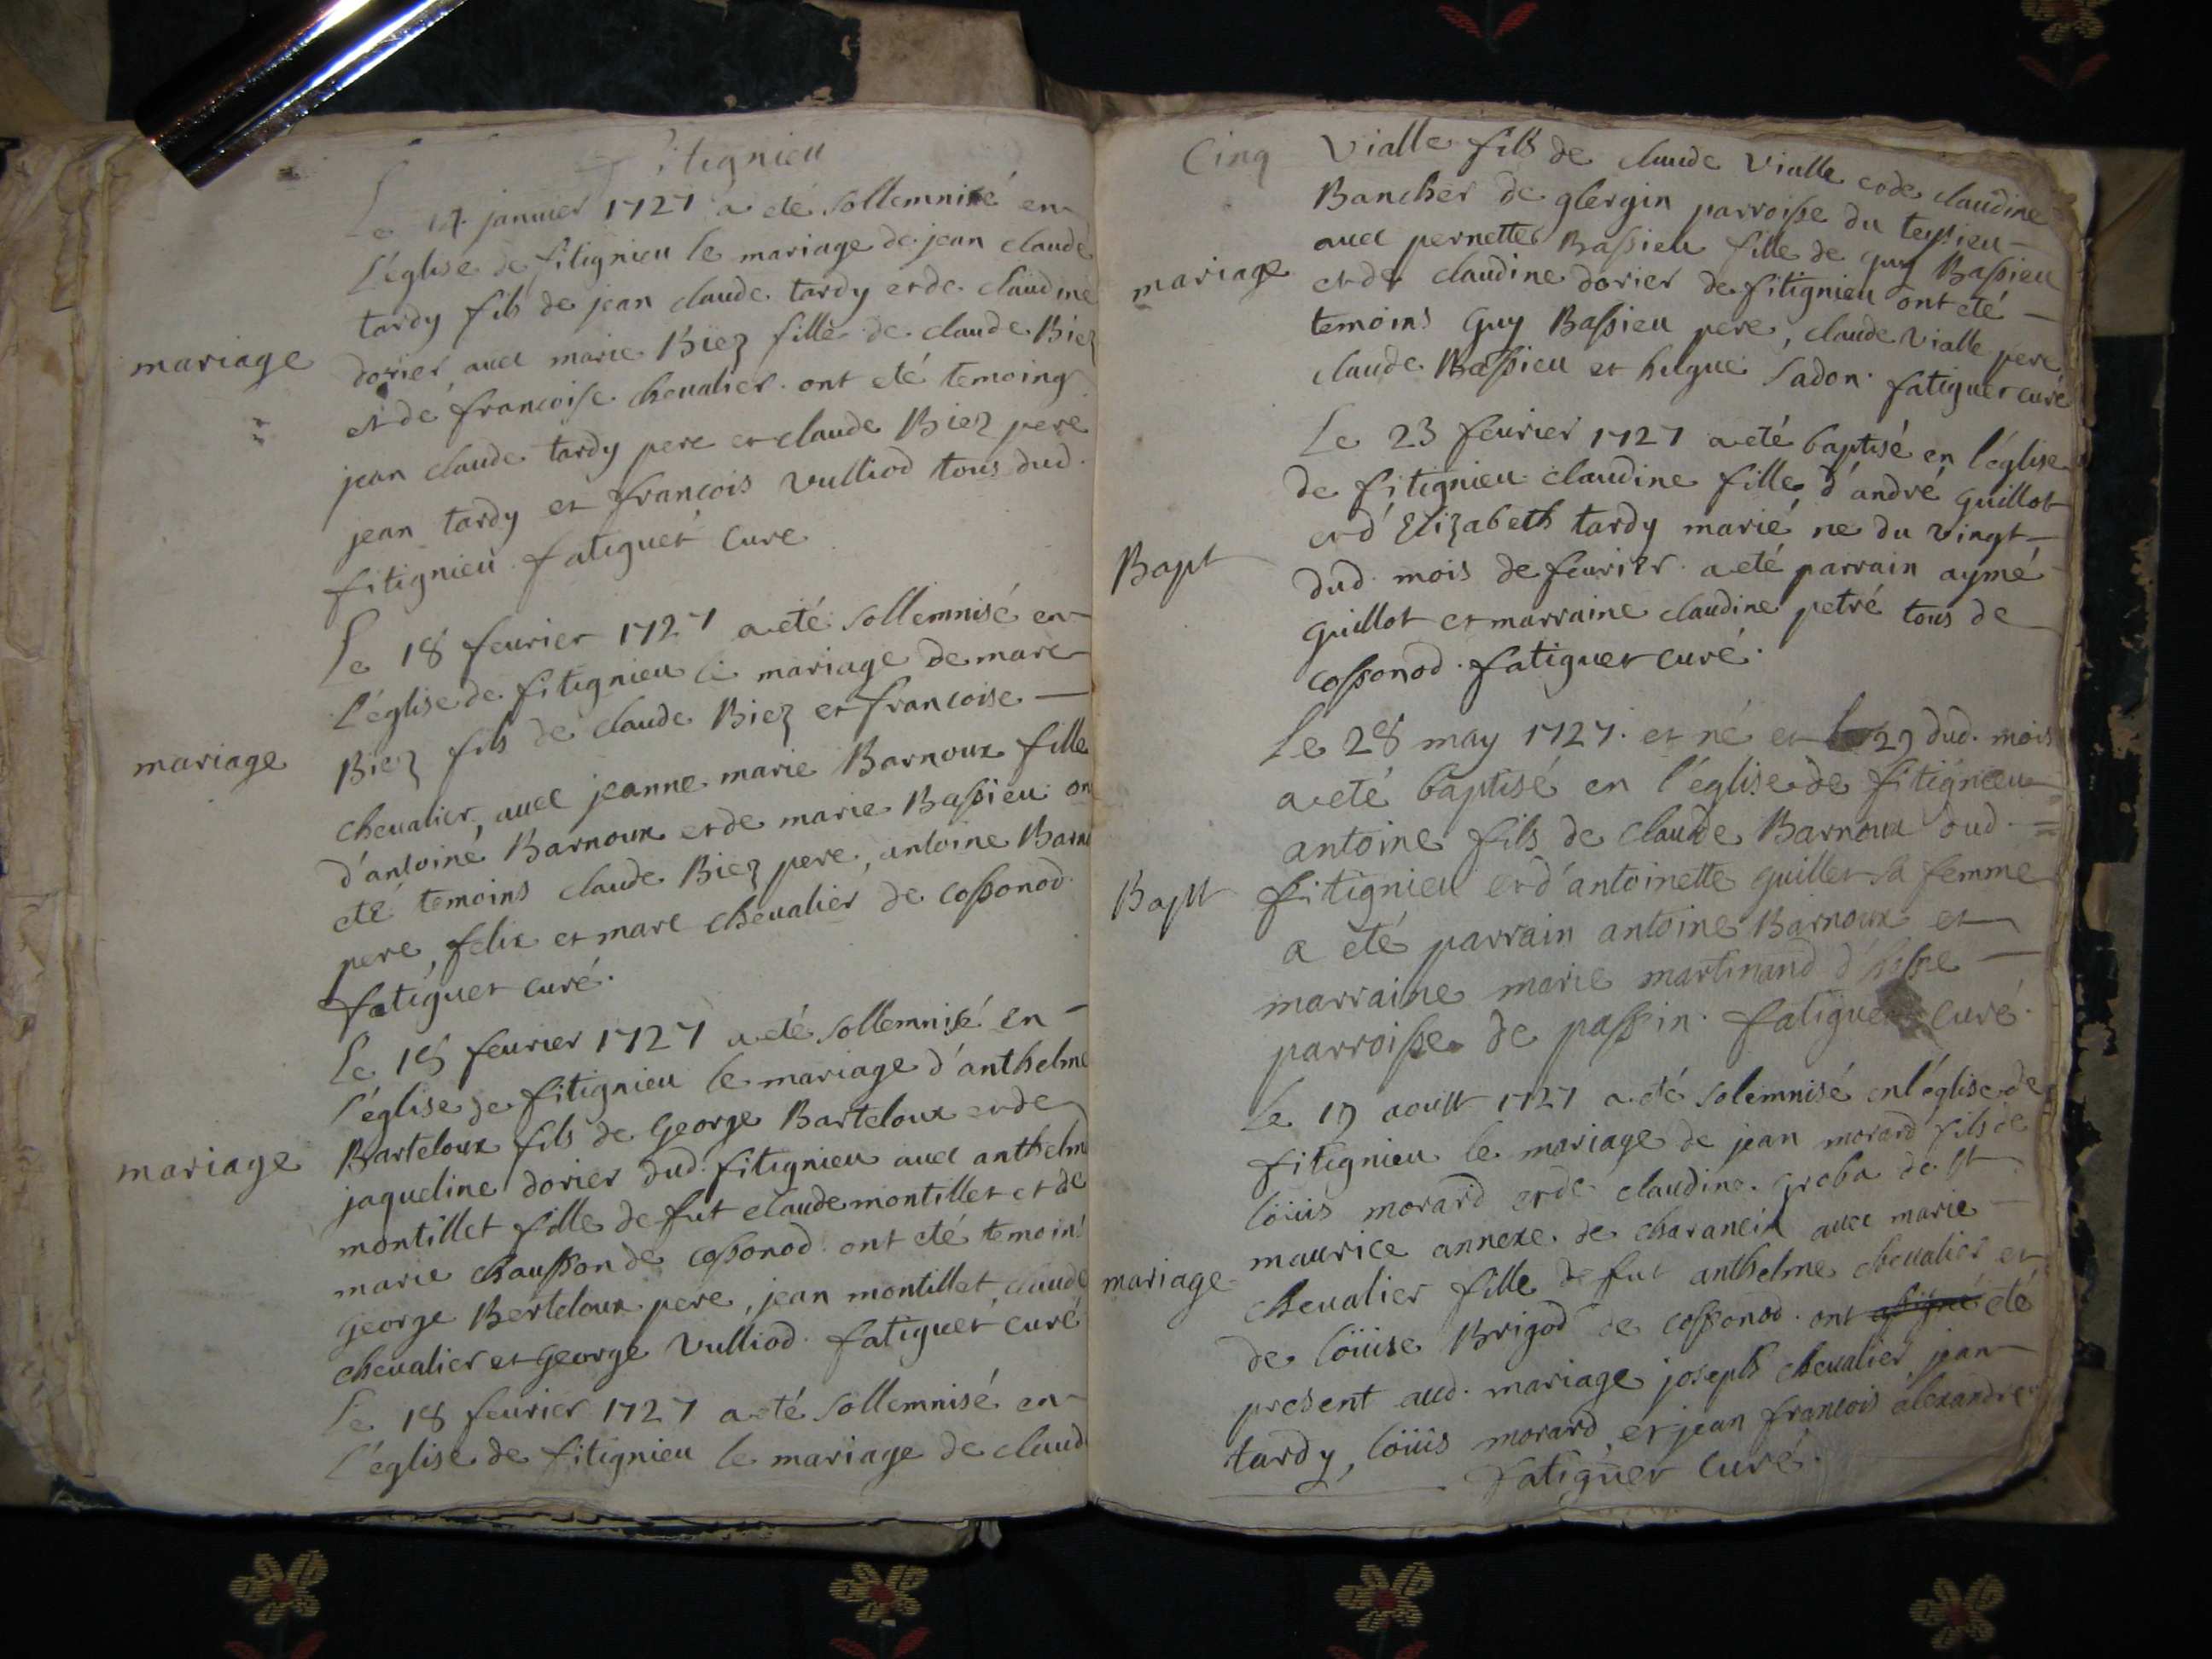 fitignieu
Le 14 janvier 1727 a eté sollemnizé en
l'église de fitignieu le mariage de jean claude
tardy fils de jean claude tardy et de claudine
mariage
dorier, auec marie Biez fille de claude Biez
et de francoise cheualier ont eté temoins
jean claude tardy pere et claude Biez pere
jean tardy et francois vulliod tous dud.
fitignieu fatiguet curé
Le 18 feurier 1727 a eté sollemnisé en
l'église de fitignieu le mariage de marc
mariage
Biez fils de claude Biez et francoise
cheualier, auec jeanne marie Barnoux fille
d'antoine Barnoux et de marie Bassieu on
eté temoins claude Biez pere, antoine Barn
pere, felix et marc cheualier de cossonod
fatiguet curé.
Le 18 feurier 1727 a eté sollemnisé en
l'église de fitignieu le mariage d'anthelme
mariage
Barteloux fils de George Barteloux et de
jaqueline dorier dud. fitignieu auec anthelm
montillet fille de fut claude montillet et de
marie chausson de cossonod ont eté temoins
george Berteloux pere, jean montillet, claude
cheualier et George vulliod. fatiguet curé
Le 18 feurier 1727 a eté sollemnisé en
l'église de fitignieu le mariage de claud
Cinq
vialle fils de claude vialle et de claudine
Bancher de glergin parroisse du
auec pernette Bassieu fille de guy Bassieu
mariage
et de claudine dorier de fitignieu ont eté
temoins Guy Bassieu pere, claude vialle pere
claude Bassieu et hugue sadon. fatiguet curé
Le 23 feurier 1727 a eté baptisé en l'église
de fitignieu claudine fille d'andré guillot
et d'Elizabeth tardy marié ne du vingt
Bapt
dud. mois de feurier. a eté parrain aymé
guillot et marraine claudine petré tous de
cossonod. fatiguet curé.
Le 28 may 1727. et né et le 29 dud. mois
a eté baptisé en l'église de fitignieu
antoine fils de claude Barnoux dud.
Bapt
fitignieu et d'antoinette guillet sa femme
a eté parrain antoine Barnoux et
marraine marie martinand
parroisse de passin. fatiguet curé.
Le 19 aoust 1727 a eté solemnisé en l'église de
fitignieu le mariage de jean morard fils de
loüis morard et de claudine greba de st
maurice annexe de charancin auec marie
mariage
cheualier fille de fut anthelme cheualier et
de loüise Brigod de cossonod. ont assigné eté
present aud. mariage joseph cheualier, jean
tardy, loüis morard, et jean francois alexandre
fatiguet curé.